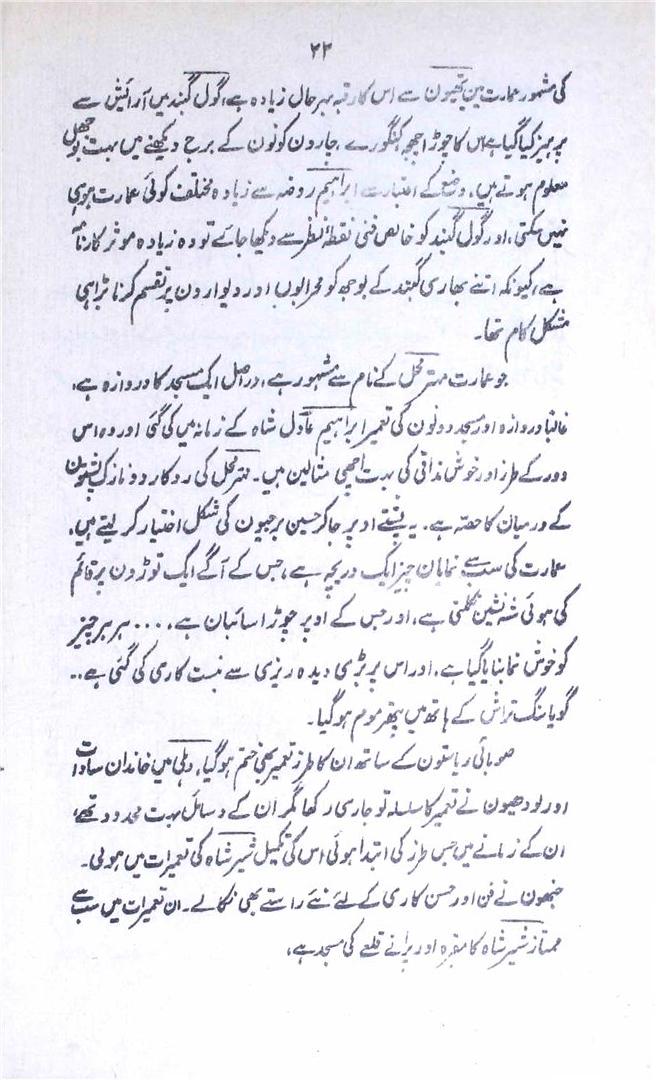 ۲۲
کی مشہور عمارت پین تھیون سے اس کا رقبہ بہر حال زیادہ ہے، گول گنبد میں آرائیش سے
پرہیز کیا گیا ہے اس کا چوڑا چھجہ، کنگورے، چارون کونون کے برج دیکھنے میں بہت بوجھل
معلوم ہوتے ہیں، وضع کے اعتبار سے ابراہیم روضہ سے زیادہ مختلف کوئی عمارت ہو ہی
نہیں سکتی، اور گول گنبد کو خالص فنی نقطۂ نظر سے دیکھا جائے تو وہ زیادہ موثر کارنامہ
ہے، کیونکہ اتنے بھاری گنبد کے بوجھ کو محرابوں اور دیوارون پر تقسم کرنا بڑا ہی
مشکل کام تھا۔
جو عمارت مہتر محل کے نام سے مشہور ہے، دراصل ایک مسجد کا دروازہ ہے،
غالبا دروازہ اور مسجد دونون کی تعمیر ابراہیم عادل شاہ کے زمانہ میں کی گئی اور وہ اس
دور کے طرز اور خوش مذاقی کی بہت اچھی مثالین ہیں۔ مہتر محل کی روکار دو نازک پشتون
کے درمیان کا حصّہ ہے۔ یہ پشتے اوپر جا کر حسین برجیون کی شکل اختیار کر لیتے ہیں،
عمارت کی سب سے نمایان چیز ایک دریچہ ہے، جس کے آگے ایک توڑون پر قائم
کی ہوئی شہ نشین نکلتی ہے، اور جس کے اوپر چوڑا سائبان ہے.... ہر ہر چیز
کو خوش نما بنایا گیا ہے، اور اس پر بڑی دیدہ ریزی سے نبت کاری کی گئی ہے..
گویا سنگ تراش کے ہاتھ میں پتھر موم ہو گیا۔
صوبائی ریاستون کے ساتھ ان کا طرز تعمیر بھی ختم ہو گیا، دہلی میں خاندان سادات
اور لودھیون نے تعمیر کا سلسلہ تو جاری رکھا مگر ان کے وسائل بہت محدود تھے،
ان کے زمانے میں جس طرز کی ابتدا ہوئی اس کی تکمیل شیر شاہ کی تعمیرات میں ہوئی۔
جنھون نے فن اور حسن کاری کے لئے نئے راستے بھی نکالے۔ ان تعمیرات میں سب سے
ممتاز شیر شاہ کا مقبرہ اور پرانے قلعے کی مسجد ہے،